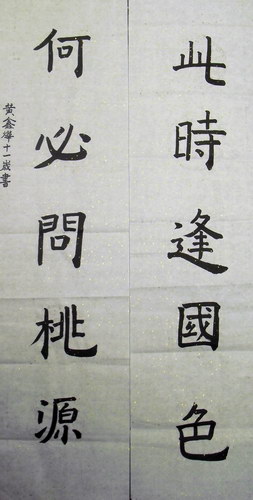 此時逢國色
何必問桃源
黃鑫燁十一歲書